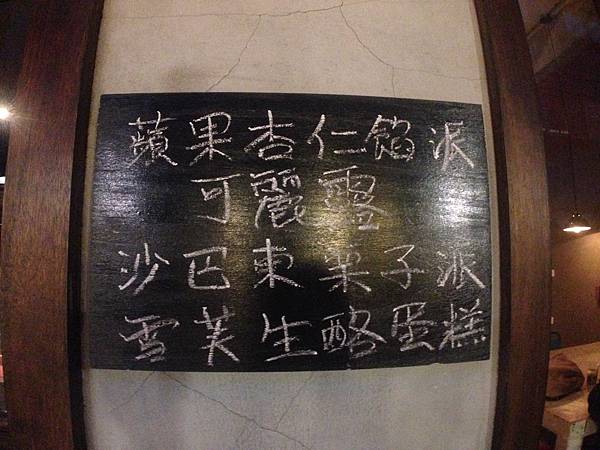 蘋果杏仁餡派
可麗露
沙巴東栗子派
雪芙生酪蛋糕